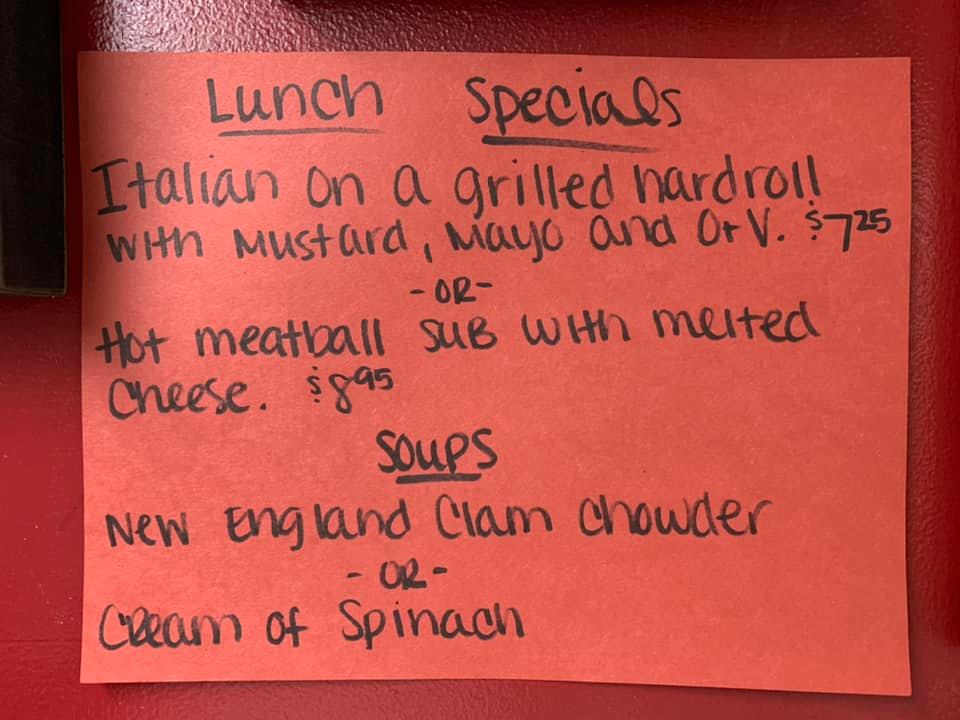 Lunch Specials
Italian on a grilled hardroll
with Mustard, Mayo and O+V. $7.25
-OR-
Hot meatball SUB with melted
Cheese. $8.95
SOUPS
New England Clam Chowder
- OR -
Cream of Spinach